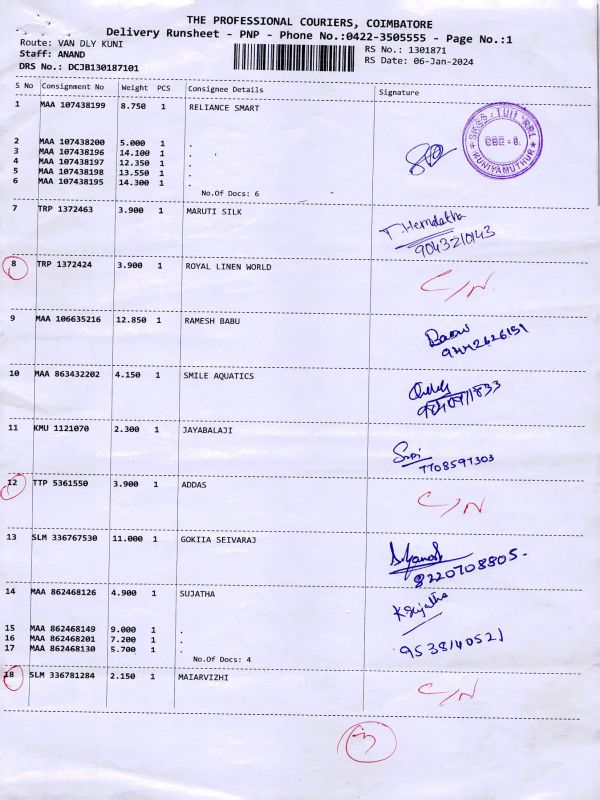 THE PROFESSIONAL COURIERS, COIMBATORE
Delivery Runsheet - PNP - Phone No.:0422-3505555 - Page No.:1
Route: VAN DLY KUNI RS No.: 1301871
Staff: ANAND RS Date: 06-Jan-2024
DRS No.: DCJB130187101
S No Consignment No Weight PCS Consignee Details Signature
1 MAA 107438199 8.750 1 RELIANCE SMART
KUNIYAMUTHUR
2 MAA 107438200 5.000 1 .
3 MAA 107438196 14.100 1 .
4 MAA 107438197 12.350 1 .
5 MAA 107438198 13.550 1 .
6 MAA 107438195 14.300 1 .
No.Of Docs: 6
7 TRP 1372463 3.900 1 MARUTI SILK
T. Hemalatha
9043210143
8 TRP 1372424 3.900 1 ROYAL LINEN WORLD
C/N
9 MAA 106635216 12.850 1 RAMESH BABU
9442626151
10 MAA 863432202 4.150 1 SMILE AQUATICS
11 KMU 1121070 2.300 1 JAYABALAJI
7708597303
12 TTP 5361550 3.900 1 ADDAS
C/N
13 SLM 336767530 11.000 1 GOKIIA SEIVARAJ
8220708805-
14 MAA 862468126 4.900 1 SUJATHA
K Sujatha
15 MAA 862468149 9.000 1 .
16 MAA 862468201 7.200 1 .
17 MAA 862468130 5.700 1 .
9538140521
No.Of Docs: 4
18 SLM 336781284 2.150 1 MAIARVIZHI
C/N
3